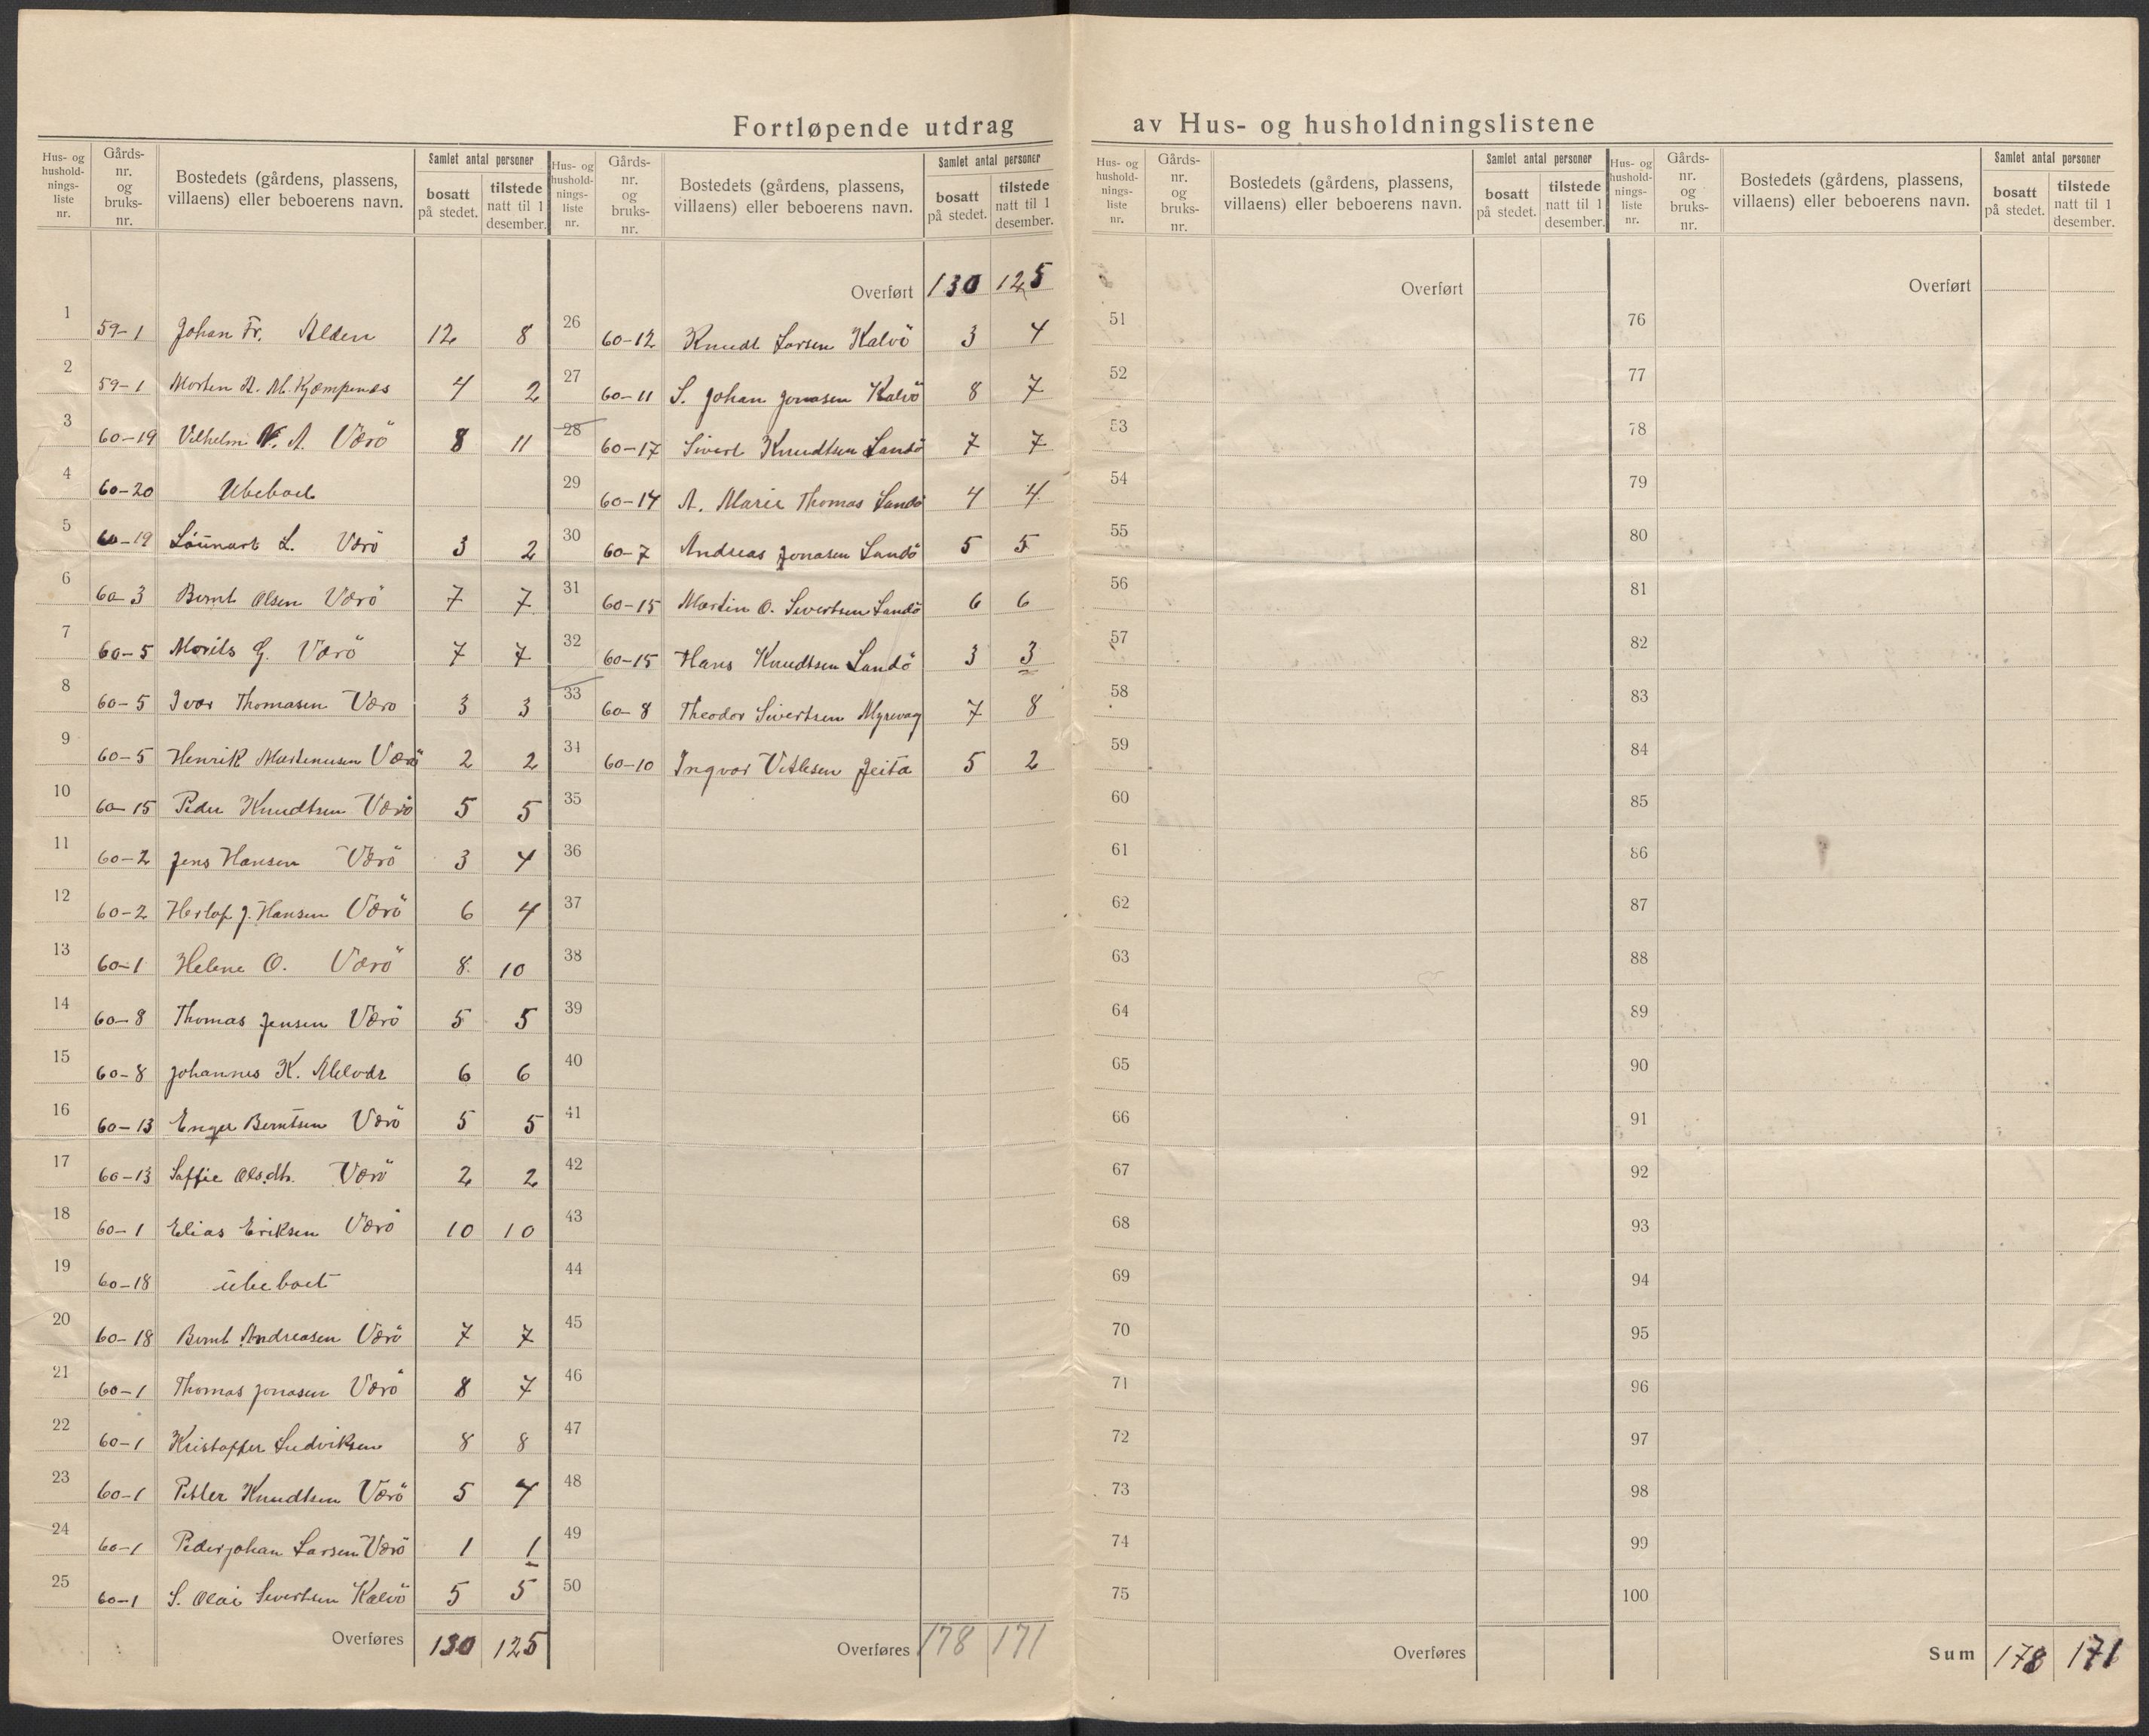 Fortløpende utdrag av Hus- og husholdningslistene
Hus- og hushold-nings-liste nr. | Gårds-nr. og bruks-nr. | Bostedets (gårdens, plassens, villaens) eller beboerens navn. | Samlet antal personer | bosatt på stedet. | tilstede natt til 1 desember.
1 59-1 Johan Fr. Alden 12 8
2 59-1 Morten A. M. Kjempenes 4 2
3 60-19 Vilhelm A. Værö 8 11
4 60-20 Ubeboet
5 60-19 L. Værö 3 2
6 60-3 Bernt Olsen Værö 7 7
7 60-5 Morits G. Værö 7 7
8 60-5 Ivar Thomasen Værö 3 3
9 60-5 Henrik Martinusen Værö 2 2
10 60-15 Peder Knudtsen Værö 5 5
11 60-2 Jens Hansen Værö 3 4
12 60-2 Herlof J. Hansen Værö 6 4
13 60-1 Helene O. Værö 8 10
14 60-8 Thomas Jensen Værö 5 5
15 60-8 Johannes K. Melvær 6 6
16 60-13 Berntsen Værö 5 5
17 60-13 Saffie Olsdtr. Værö 2 2
18 60-1 Elias Eriksen Værö 10 10
19 60-18 ubeboet
20 60-18 Bernt Andreasen Værö 7 7
21 60-1 Thomas Jonasen Værö 8 7
22 60-1 Kristoffer Ludviksen 8 8
23 60-1 Petter Knudtsen Værö 5 4
24 60-1 Peder Johan Larsen Værö 1 1
25 60-1 S. Olai Sivertsen Kalvö 5 5
Overføres 130 125
Hus- og hushold-nings-liste nr. | Gårds-nr. og bruks-nr. | Bostedets (gårdens, plassens, villaens) eller beboerens navn. | Samlet antal personer | bosatt på stedet. | tilstede natt til 1 desember.
Overført 130 125
26 60-12 Knudt Larsen Kalvö 3 4
27 60-11 S. Johan Jonasen Kalvö 8 7
28 60-17 Sivert Knudtsen Landö 7 7
29 60-14 A. Marie Thomas Landö 4 4
30 60-7 Andreas Jonasen Landö 5 5
31 60-15 Martin O. Sivertsen Landö 6 6
32 60-15 Hans Knudtsen Landö 3 3
33 60-8 Theodor Sivertsen Myrevag 7 8
34 60-10 Ingvar Vetlesen Geita 5 2
35
36
37
38
39
40
41
42
43
44
45
46
47
48
49
50
Overføres 178 171
Hus- og hushold-nings-liste nr. | Gårds-nr. og bruks-nr. | Bostedets (gårdens, plassens, villaens) eller beboerens navn. | Samlet antal personer | bosatt på stedet. | tilstede natt til 1 desember.
Overført
51
52
53
54
55
56
57
58
59
60
61
62
63
64
65
66
67
68
69
70
71
72
73
74
75
Overføres
Hus- og hushold-nings-liste nr. | Gårds-nr. og bruks-nr. | Bostedets (gårdens, plassens, villaens) eller beboerens navn. | Samlet antal personer | bosatt på stedet. | tilstede natt til 1 desember.
Overført
76
77
78
79
80
81
82
83
84
85
86
87
88
89
90
91
92
93
94
95
96
97
98
99
100
Sum 178 171